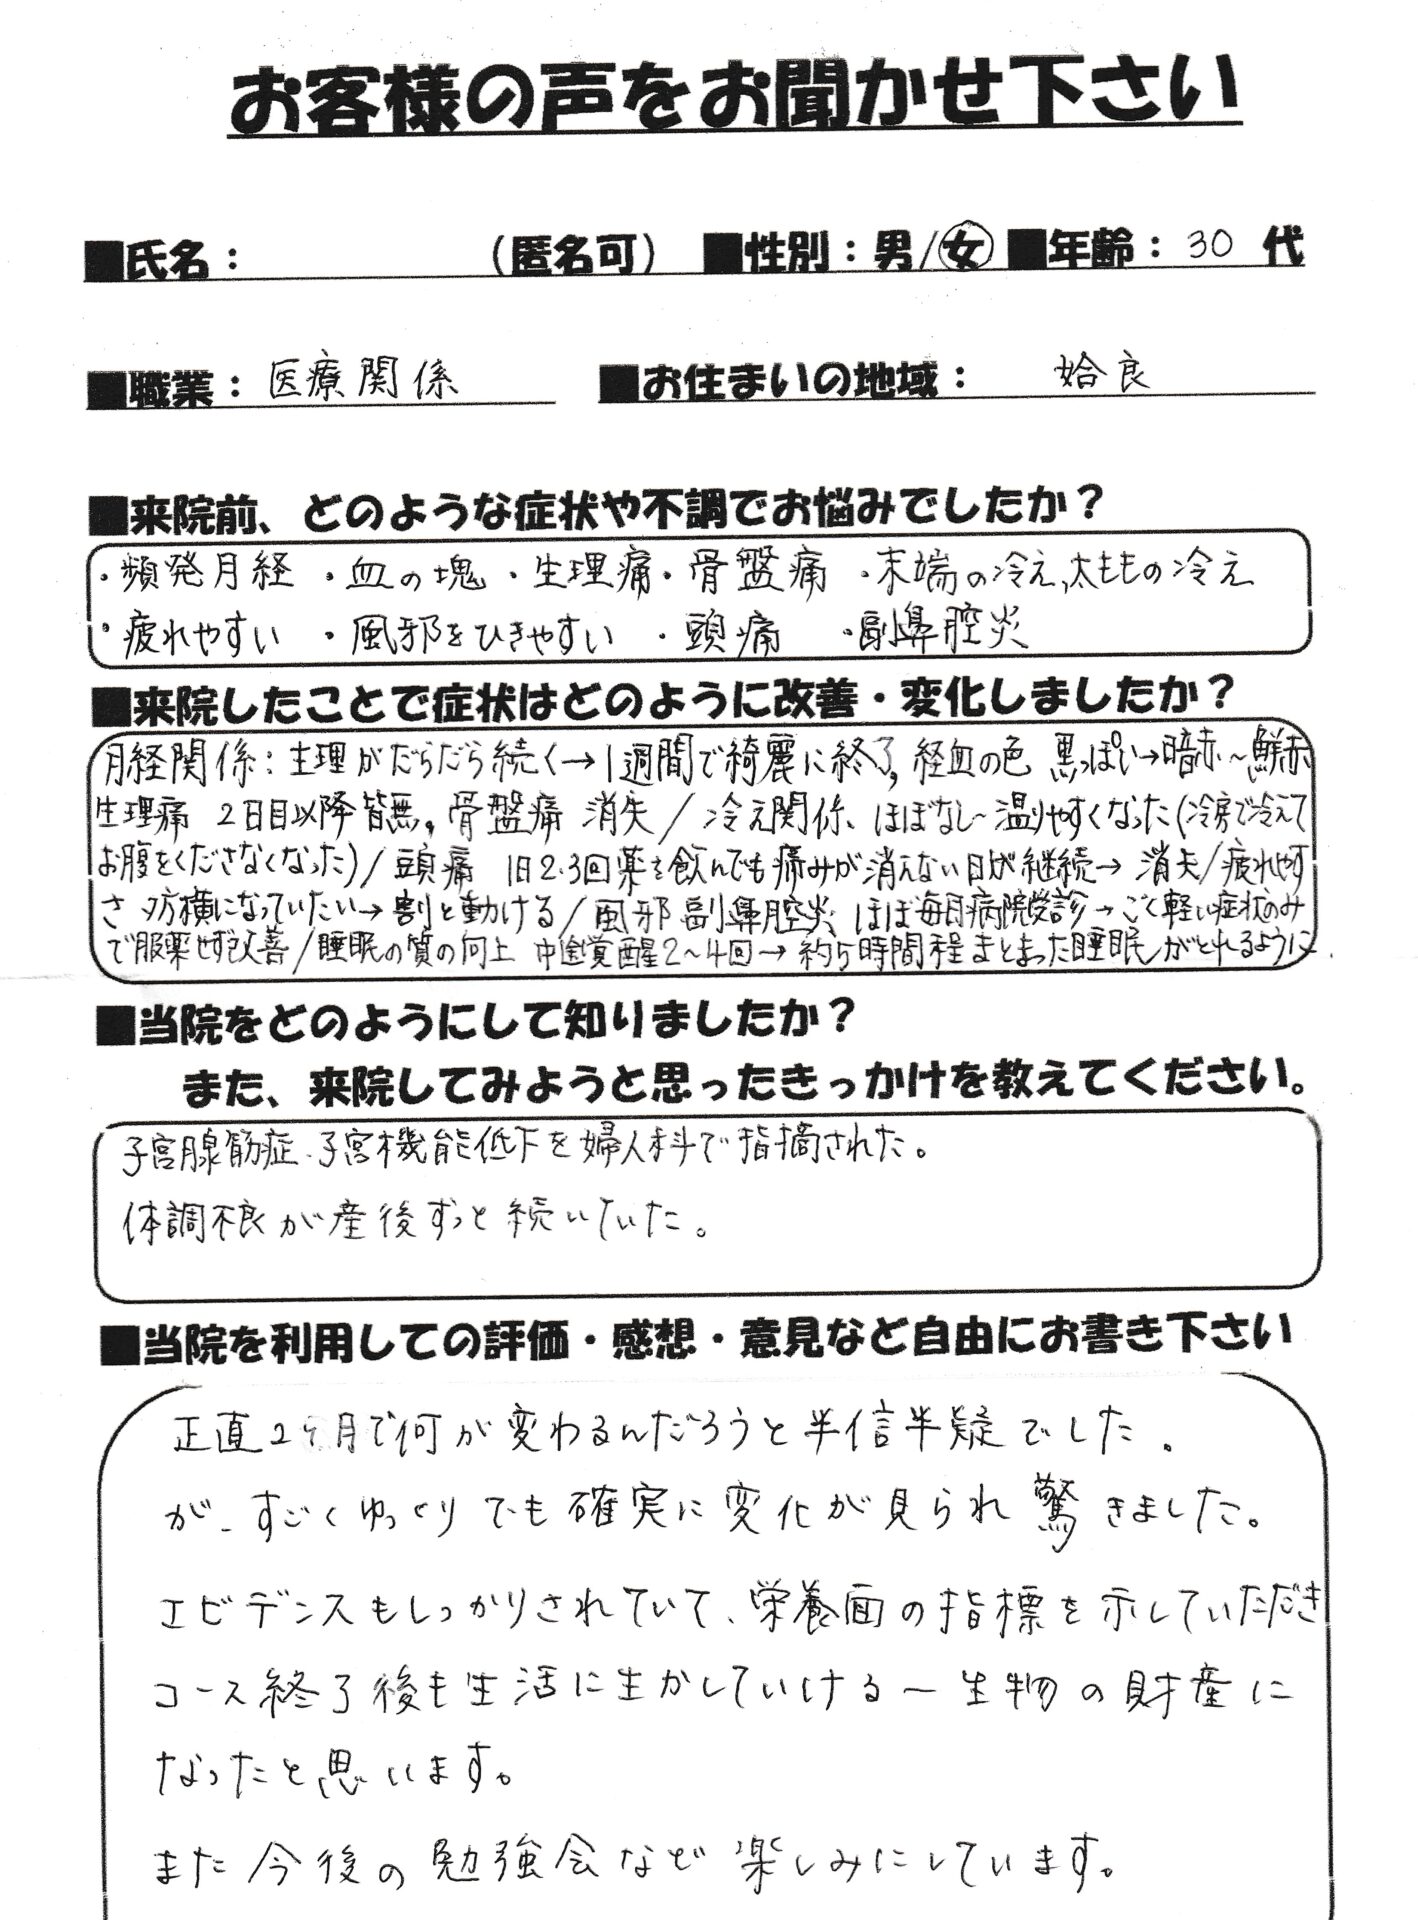 お客様の声をお聞かせ下さい
■氏名： （匿名可） ■性別：男/女 ■年齢：30代
■職業：医療関係 ■お住まいの地域： 姶良
■来院前、どのような症状や不調でお悩みでしたか？
・頻発月経 ・血の塊 ・生理痛 ・骨盤痛 ・末端の冷え、太ももの冷え
・疲れやすい ・風邪をひきやすい ・頭痛 ・副鼻腔炎
■来院したことで症状はどのように改善・変化しましたか？
月経関係：生理がだらだら続く→1週間で綺麗に終了, 経血の色 黒っぽい→暗赤～鮮赤
生理痛 2日目以降皆無。骨盤痛 消失/冷え関係、ほぼなし～温りやすくなった(冷房で冷えて
お腹をくださなくなった)/頭痛 1日2.3回薬を飲んでも痛みが消えない日が継続→消失/疲れやす
さ 夕方横になっていたい→割と動ける/風邪 副鼻腔炎 ほぼ毎月病院受診→ごく軽い症状のみ
で服薬せず改善/睡眠の質の向上 中途覚醒2～4回→約5時間程まとまった睡眠がとれるように.
■当院をどのようにして知りましたか？
また、来院してみようと思ったきっかけを教えてください。
子宮腺筋症、子宮機能低下を婦人科で指摘された。
体調不良が産後ずっと続いていた。
■当院を利用しての評価・感想・意見など自由にお書き下さい
正直2ヶ月で何が変わるんだろうと半信半疑でした。
が、すごくゆっくりでも確実に変化が見られ驚きました。
エビデンスもしっかりされていて、栄養面の指標を示していただき
コース終了後も生活に生かしていける一生物の財産に
なったと思います。
また今後の勉強会など楽しみにしています。